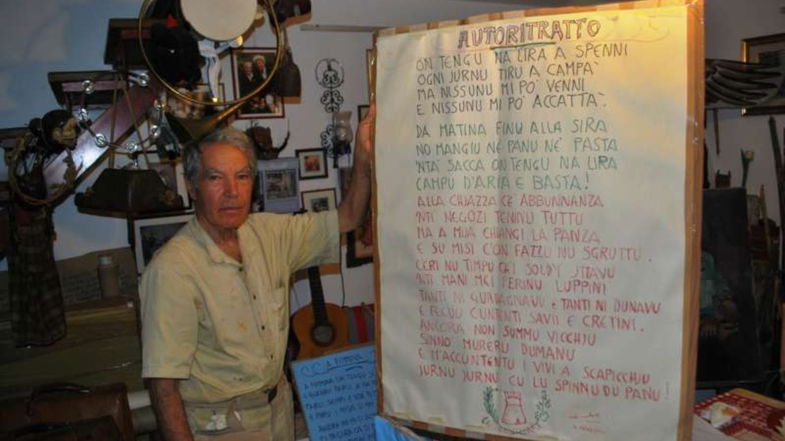 AUTORITRATTO
ON TENGU 'NA LIRA A SPENNI
OGNI JURNU TIRU A CAMPA'
MA NISSUNU MI PO' VENNI
E NISSUNU MI PO' ACCATTA'.
DA MATINA FINU ALLA SIRA
NO MANGIU NE PANU NE' PASTA
'NTA' SACCA ON TENGU NA LIRA
CAMPU D'ARIA E BASTA!
ALLA CHIAZZA C'E ABBUNNANZA
'NTI NEGOZI TENINU TUTTU
MA A MIJA CHIANGI LA PANZA
E SU MISI C'ON FAZZU NU SGRUTTU.
CERI NU TIMPU CA I SOLDI
'NTI MANI MEI PERINU LUPPINI
TANTI NI GUADAGNAVU E TANTI NI DUNAVU
E FECIU CUNTENTI SAVII E CRETINI.
ANCORA NON SUMMU VICCHJU
SINNO MURERU DUMANU
E M'ACCUNTENTU I VIVI A SCAPICCHJU
JURNU JURNU CU LU SPINNU DU PANU